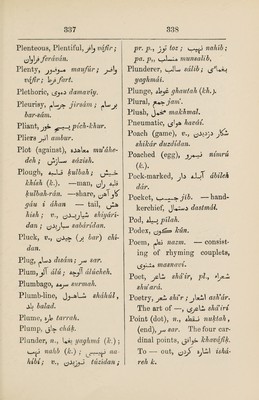 337
Plenteous, Plentiful, وافر váfir;
فراوان fəráván.
Plenty, موفور maufúr; وافر
váfir; فرت fart.
Plethoric, دموی damaviy.
Pleurisy, جرسام jirsám; بر سام
bar-sám.
Pliant, پیچ خور pích-khur.
Pliers انبر ambur.
Plot (against), معاهده mu'áhe-
deh; سازش sázish.
Plough, قلبه ḳulbah; خیش
khísh (k.). —man, قلبه ران
ḳulbah-rán. —share, گاو آهن
gáu i áhan — tail, هش
hish; v., شیاریدن shiyárí-
dan; سباریدن sabárídan.
Pluck, v., چیدن (بر bar) chí-
dan.
Plug, دسام dasám; سر sar.
Plum, آلو álú; آلوچه álúcheh.
Plumbago, سرمه surmah.
Plumb-line, شاهول sháhúl,
بلد balad.
Plume, تره tarrah.
Plump, چاق cháḳ.
Plunder, n., یغما yaghmá (k.);
نهب nahb (k.); نهیب na-
híbí; v., توزیدن túzídan;
338
pr. p., توز toz; نهیب nahíb;
pa. p., منسلب munsalib.
Plunderer, سالب sálib; یغمائی
yaghmáí.
Plunge, غوطه ghautah (kh.).
Plural, جمع jam'.
Plush, مخمل makhmal.
Pneumatic, هوائی haváí.
Poach (game), v., شکار دزدیدن
shikár duzdídan.
Poached (egg), نیمرو nímrú
(k.).
Pock-marked, آبله دار ábileh
dár.
Pocket, جیب jib. — hand-
kerchief, دستمال dastmál.
Pod, پیله pílah.
Podex, کون kún.
Poem, نظم nazm. — consist-
ing of rhyming couplets,
مثنوی masnaví.
Poet, شاعر shá'ir, pl., شعرا
shu'ará.
Poetry, شعر shi'r; اشعار ash'ár.
The art of —, شاعری shá'irí
Point (dot), n., نقطه nuḳtah,
(end), سر sar. The four car-
dinal points, خوافق khawáfiḳ.
To — out, اشاره کردن ishá-
reh k.